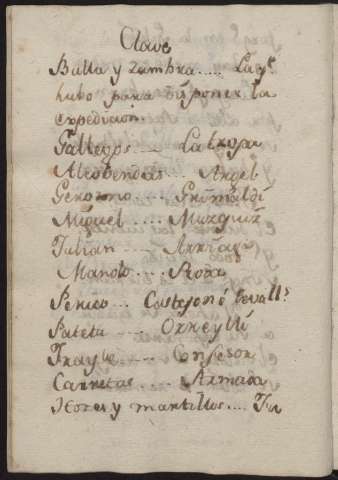 Clave
Bulla y Zambra.... La qe.
hubo para disponer la
expedicion
Gallegos.... La tropa
Alcobendas... Argel
Geronimo.... Grimaldi
Miguel.... Muzquiz
Julian.... Arriaga
Manolo.... Roda
Perico... Castejon ó Cevalls.
Pateta.... Orreylli
Frayle.... Confesor
Carretas.... Armada
Hozes y martillos....